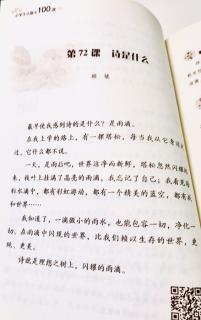 小学生小古文100课
第72课 诗是什么
顾城
最早使我感到诗的是什么？是雨滴。
在我上学的路上，有一棵塔松，每当我从它身边
过，它什么都不说。
一天，是雨后吧，世界洁净而新鲜，塔松忽然闪耀
，枝叶上挂满了晶亮的雨滴，我忘记了自己；我看见每
粒水滴中，都有彩虹游动，都有一个精美的蓝空，都有我
和世界……
我知道了，一滴微小的雨水，也能包容一切，净化一
切。在雨滴中闪现的世界，比我们赖以生存的世界，更
纯、更美。
诗就是理想之树上，闪耀的雨滴。